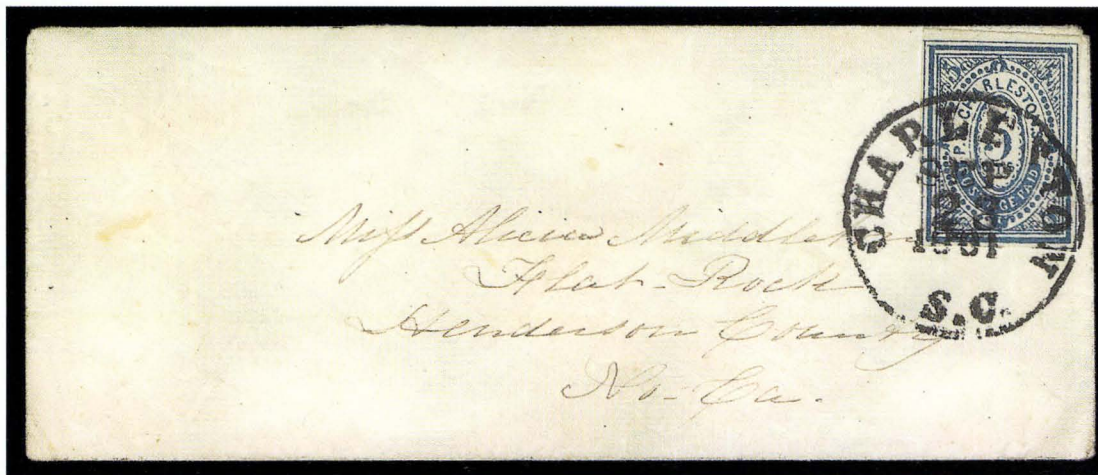 P.O. CHARLESTON
5
POSTAGE PAID
CHARLESTON
SEP
1861
S.C.
Miss Alicia Middleton
Flat-Rock
Henderson County
No-Ca.